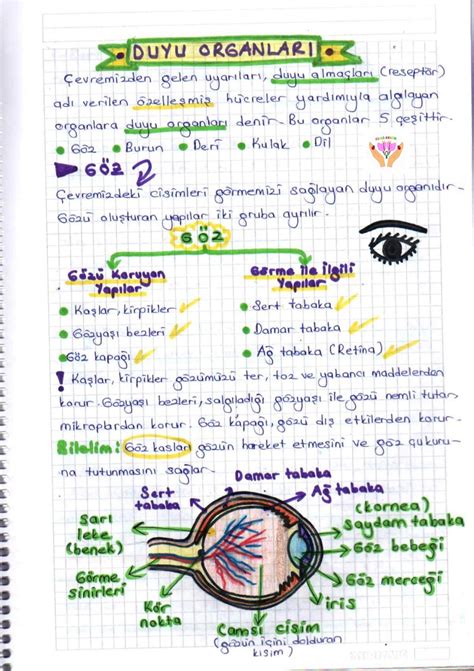 DUYU ORGANLARI
Çevremizden gelen uyarıları, duyu almaçları (reseptör)
adı verilen özelleşmiş hücreler yardımıyla algılayan
organlara duyu organları denir. Bu organlar 5 çeşittir.
• Göz • Burun • Deri • Kulak • Dil
GÖZ
Çevremizdeki cisimleri görmemizi sağlayan duyu organıdır.
Gözü oluşturan yapılar iki gruba ayrılır.
GÖZ
Gözü Koruyan
Yapılar
• Kaşlar, kirpikler
• Gözyaşı bezleri
• Göz kapağı
Görme ile ilgili
Yapılar
• Sert tabaka
• Damar tabaka
• Ağ tabaka (Retina)
! Kaşlar, kirpikler gözümüzü ter, toz ve yabancı maddelerden
korur. Gözyaşı bezleri, salgıladığı gözyaşı ile gözü nemli tutar
mikroplardan korur. Göz kapağı, gözü dış etkilerden korur.
Bilelim: Göz kasları gözün hareket etmesini ve göz çukuru-
na tutunmasını sağlar.
Damar tabaka
Sert
tabaka
Ağ tabaka
(kornea)
Saydam tabaka
Sarı
leke
(benek)
Göz bebeği
Görme
sinirleri
Göz merceği
iris
Kör
nokta
Camsı cisim
(gözün içini dolduran
kısım)